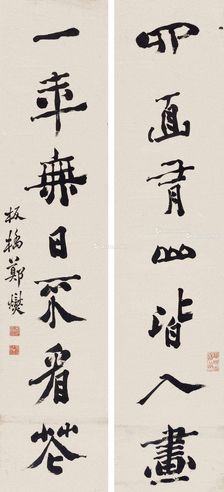 四面青山皆入畫
一年無日不看花
板橋鄭燮